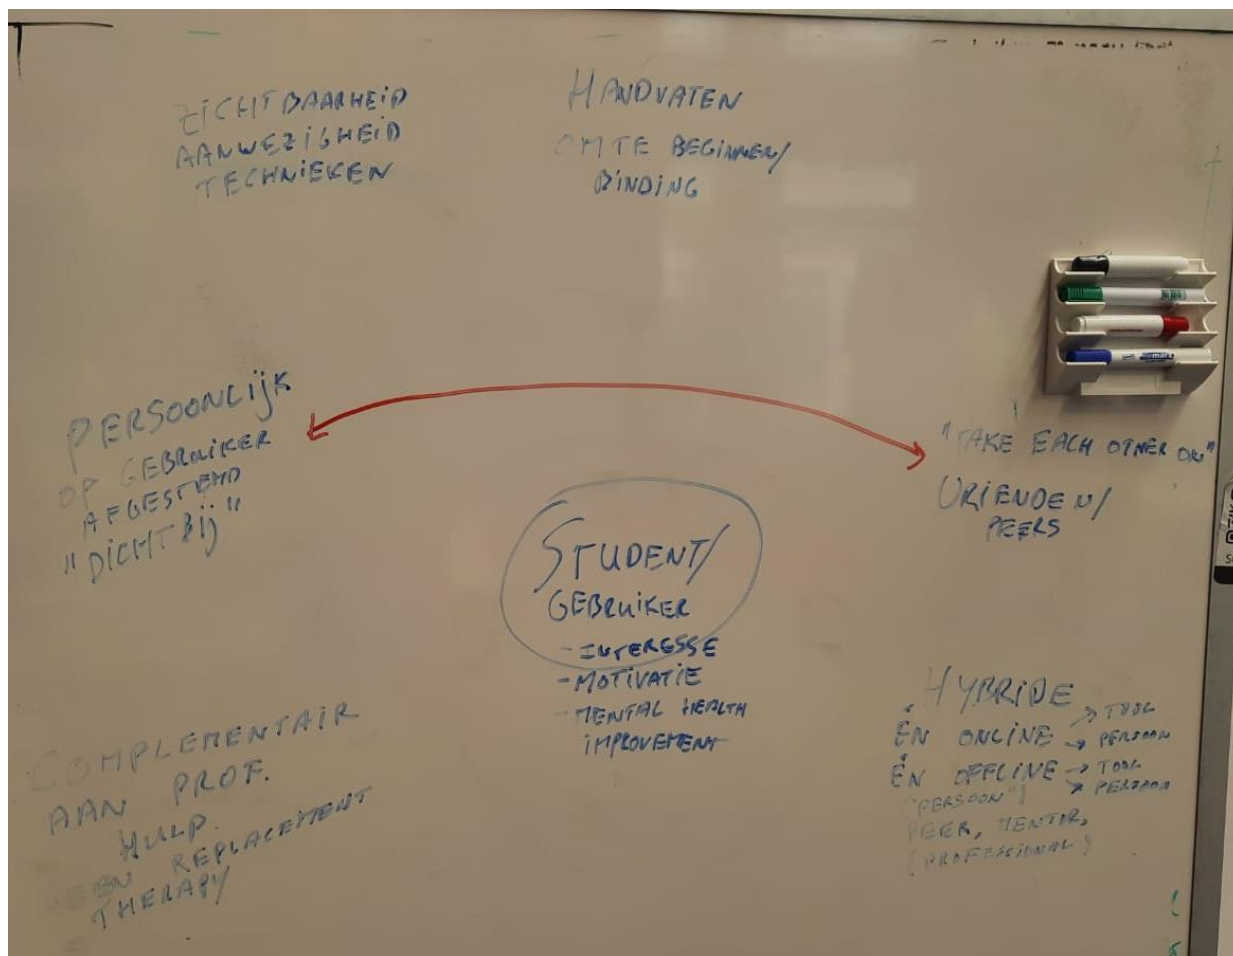 ZICHTBAARHEID
AANWEZIGHEID
TECHNIEKEN
HANDVATEN
OM TE BEGINNEN/
BINDING
PERSOONLIJK
OP GEBRUIKER
AFGESTEMD
"DICHTBIJ"
"TAKE EACH OTHER ON"
VRIENDEN/
PEERS
STUDENT/
GEBRUIKER
- INTERESSE
- MOTIVATIE
- MENTAL HEALTH
IMPROVEMENT
COMPLEMENTAIR
AAN PROF.
HULP.
GEEN REPLACEMENT
THERAPY
HYBRIDE
ÉN ONLINE → TOOL
→ PERSOON
ÉN OFFLINE → TOOL
→ PERSOON
("PERSOON")
PEER, MENTOR,
(PROFESSIONAL)